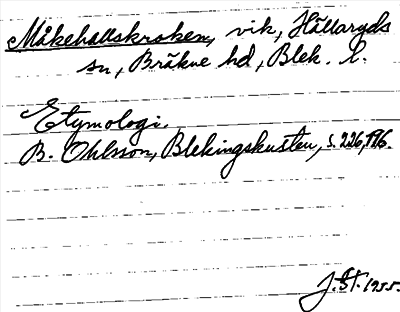 Måkehallskroken, vik, Hällaryds
sn, Bräkne hd, Blek. l.
Etymologi.
B. Ohlsson, Blekingskusten, s. 226, 116.
J. St. 1955.